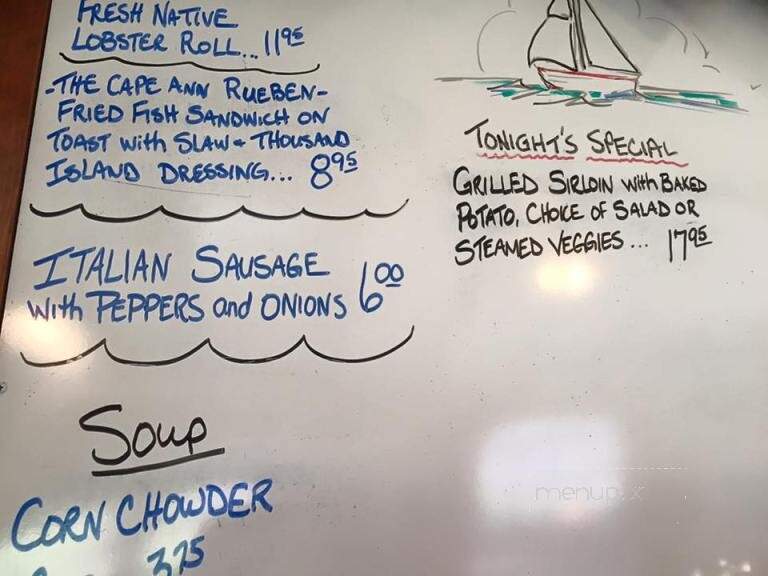 FRESH NATIVE
LOBSTER ROLL... 11 95
-THE CAPE ANN RUEBEN-
FRIED FISH SANDWICH ON
TOAST with SLAW + THOUSAND
ISLAND DRESSING... 8 95
ITALIAN SAUSAGE
with PEPPERS and ONIONS 6 00
Soup
CORN CHOWDER
3.75
TONIGHT'S SPECIAL
GRILLED SIRLOIN with BAKED
POTATO, CHOICE OF SALAD OR
STEAMED VEGGIES... 17 95
menupix